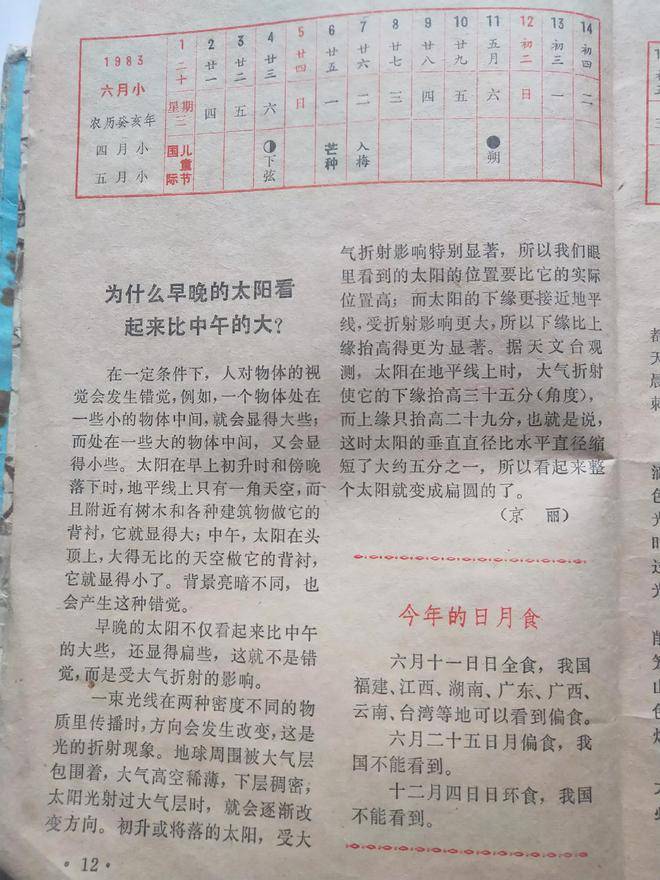 1983
六月小
农历癸亥年
四月小
五月小
1 2 3 4 5 6 7 8 9 10 11 12 13 14
二十 廿一 廿二 廿三 廿四 廿五 廿六 廿七 廿八 廿九 五月 初二 初三 初四
星期三 四 五 六 日 一 二 三 四 五 六 日 一 二
国际儿童节 下弦 芒种 入梅 朔
为什么早晚的太阳看
起来比中午的大?
在一定条件下,人对物体的视
觉会发生错觉,例如,一个物体处在
一些小的物体中间,就会显得大些;
而处在一些大的物体中间,又会显
得小些。太阳在早上初升时和傍晚
落下时,地平线上只有一角天空,而
且附近有树木和各种建筑物做它的
背衬,它就显得大;中午,太阳在头
顶上,大得无比的天空做它的背衬,
它就显得小了。背景亮暗不同,也
会产生这种错觉。
早晚的太阳不仅看起来比中午
的大些,还显得扁些,这就不是错
觉,而是受大气折射的影响。
一束光线在两种密度不同的物
质里传播时,方向会发生改变,这是
光的折射现象。地球周围被大气层
包围着,大气高空稀薄,下层稠密;
太阳光射过大气层时,就会逐渐改
变方向。初升或将落的太阳,受大
气折射影响特别显著,所以我们眼
里看到的太阳的位置要比它的实际
位置高;而太阳的下缘更接近地平
线,受折射影响更大,所以下缘比上
缘抬高得更为显著。据天文台观
测,太阳在地平线上时,大气折射
使它的下缘抬高三十五分(角度),
而上缘只抬高二十九分,也就是说,
这时太阳的垂直直径比水平直径缩
短了大约五分之一,所以看起来整
个太阳就变成扁圆的了。
(京 丽)
今年的日月食
六月十一日日全食,我国
福建、江西、湖南、广东、广西、
云南、台湾等地可以看到偏食。
六月二十五日月偏食,我
国不能看到。
十二月四日日环食,我国
不能看到。
·12·